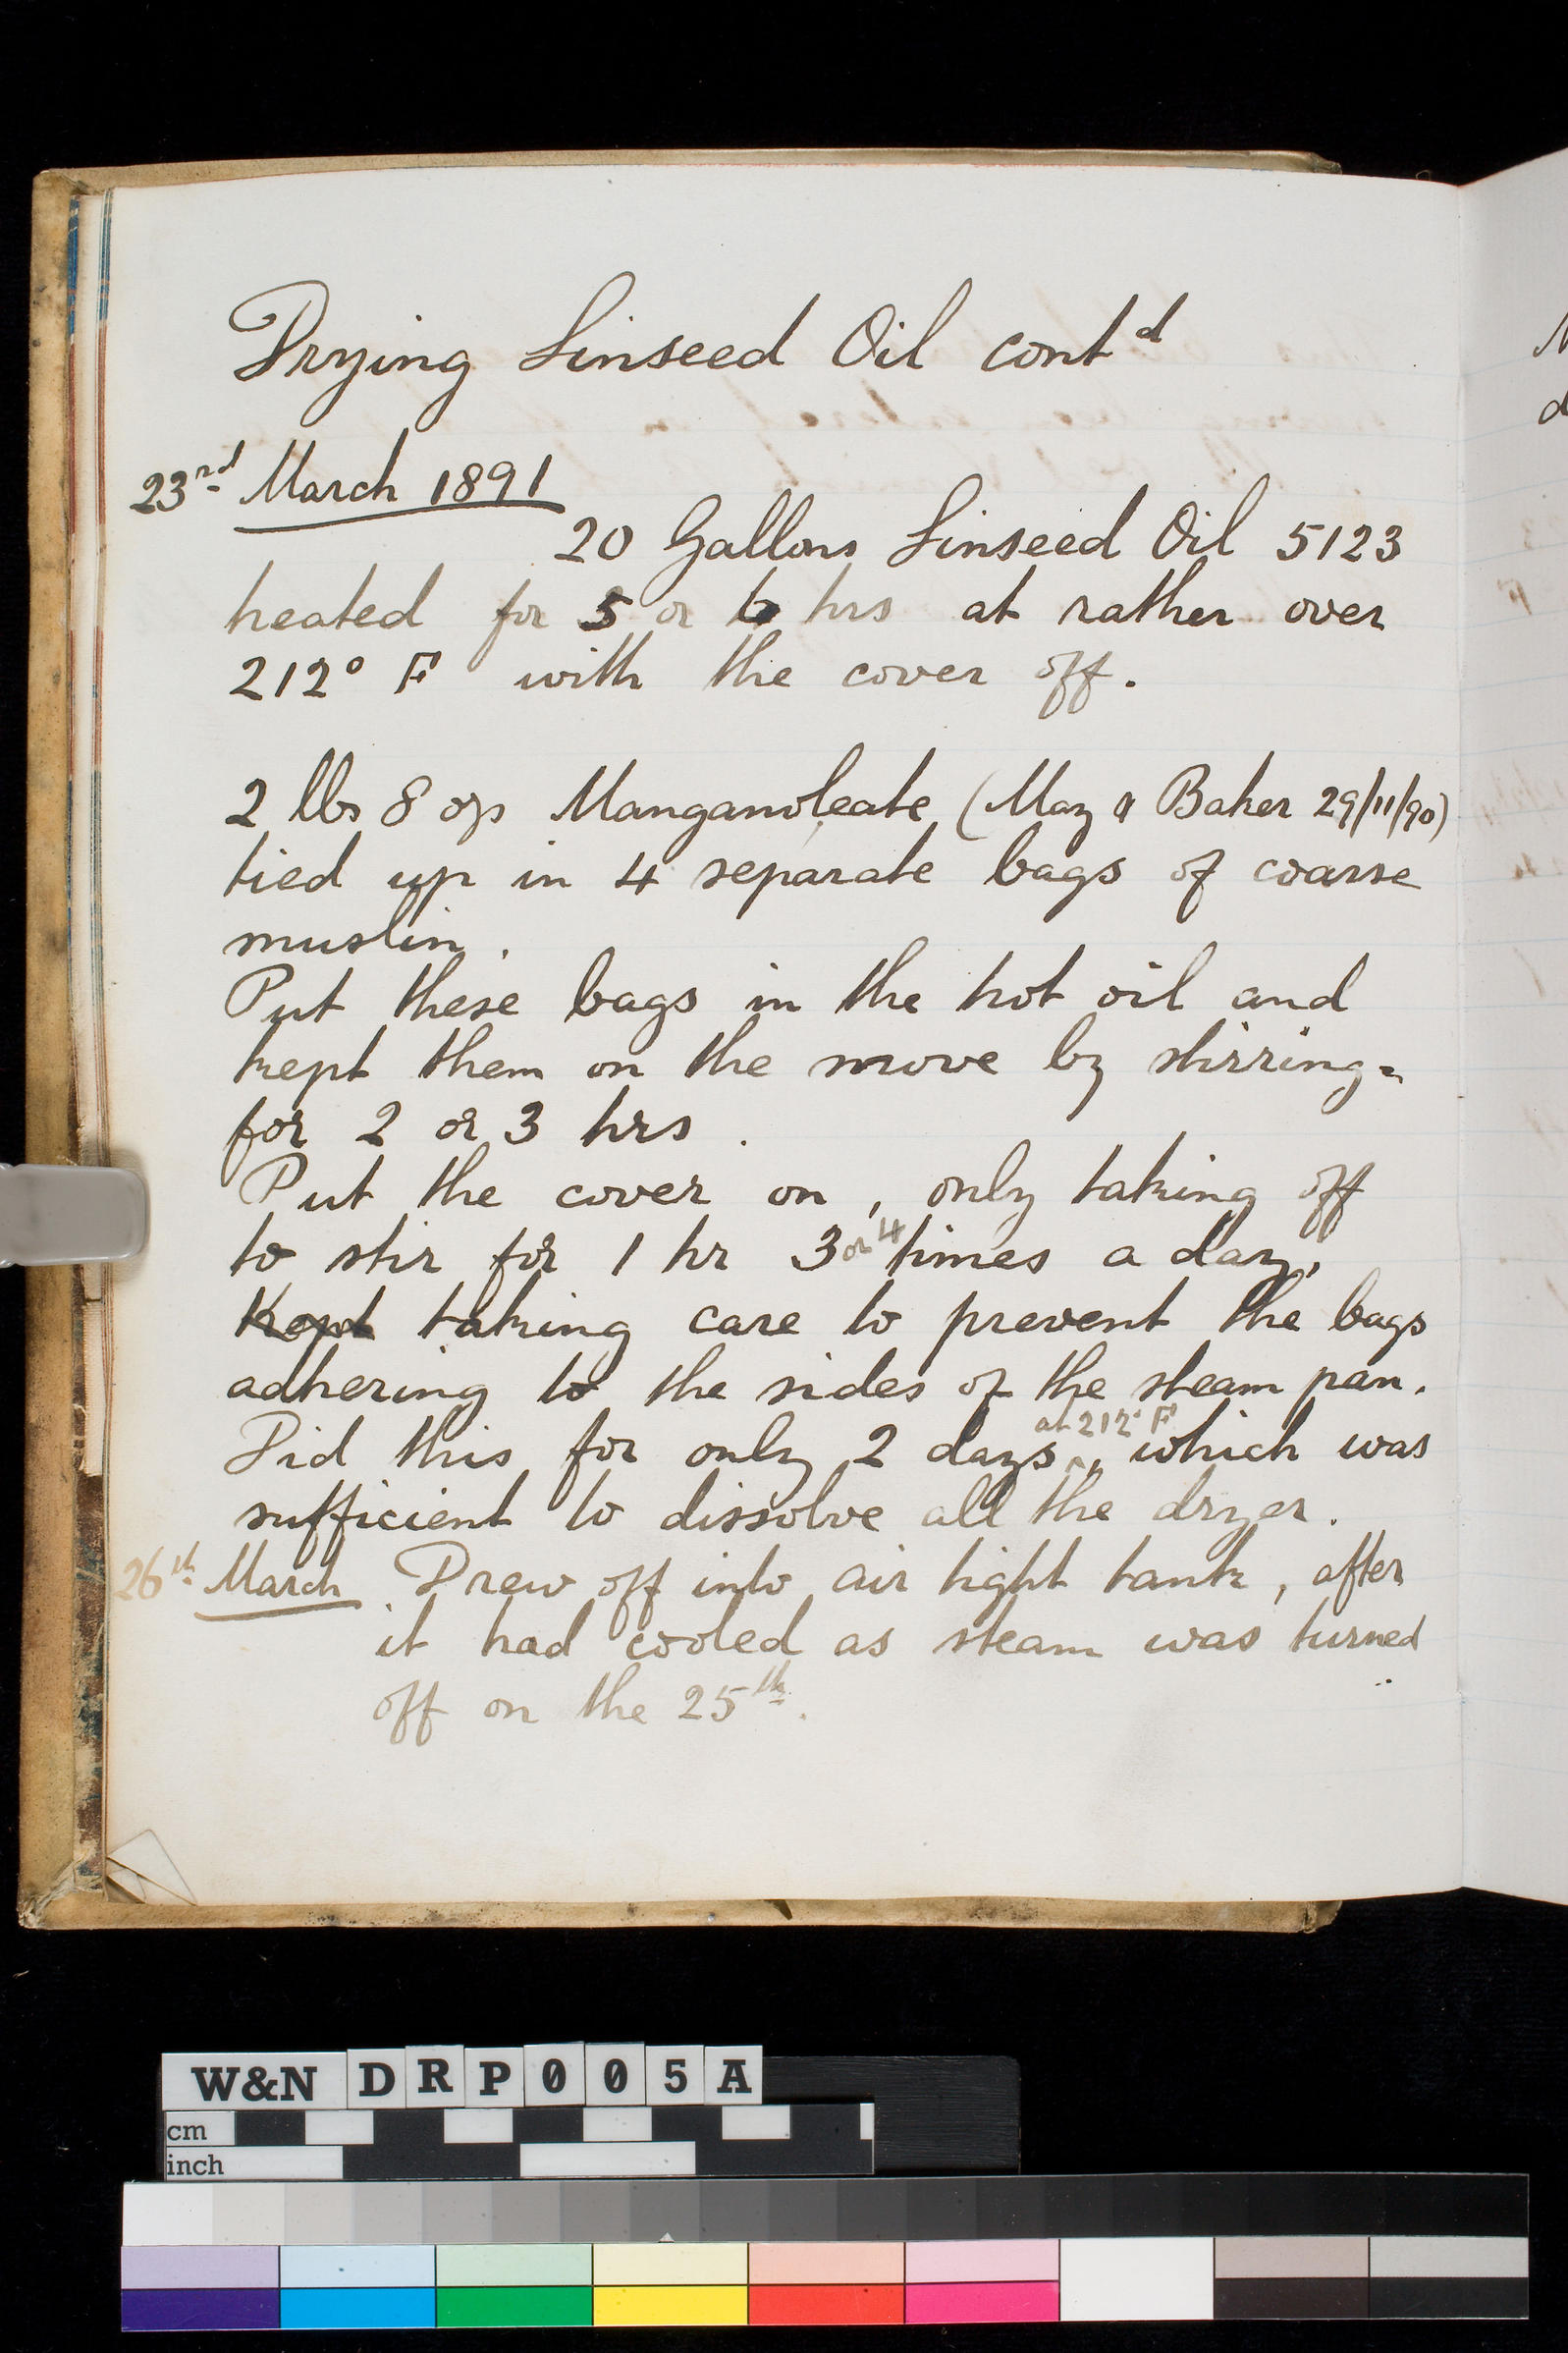 Drying Linseed Oil contd
23rd March 1891
20 Gallons Linseed Oil 5123
heated for 5 or 6 hrs at rather over
212° F with the cover off.
2 lbs 8 ozs Manganoleate (May & Baker 29/11/90)
tied up in 4 separate bags of coarse
muslin.
Put these bags in the hot oil and
kept them on the move by stirring-
for 2 or 3 hrs.
Put the cover on, only taking off
to stir for 1 hr 3 or 4 times a day,
Kept taking care to prevent the bags
adhering to the sides of the steam pan.
Did this for only 2 days at 212° F, which was
sufficient to dissolve all the dryer.
26th March Drew off into air tight tank, after
it had cooled as steam was turned
off on the 25th.
W&N DRP005A
cm
inch